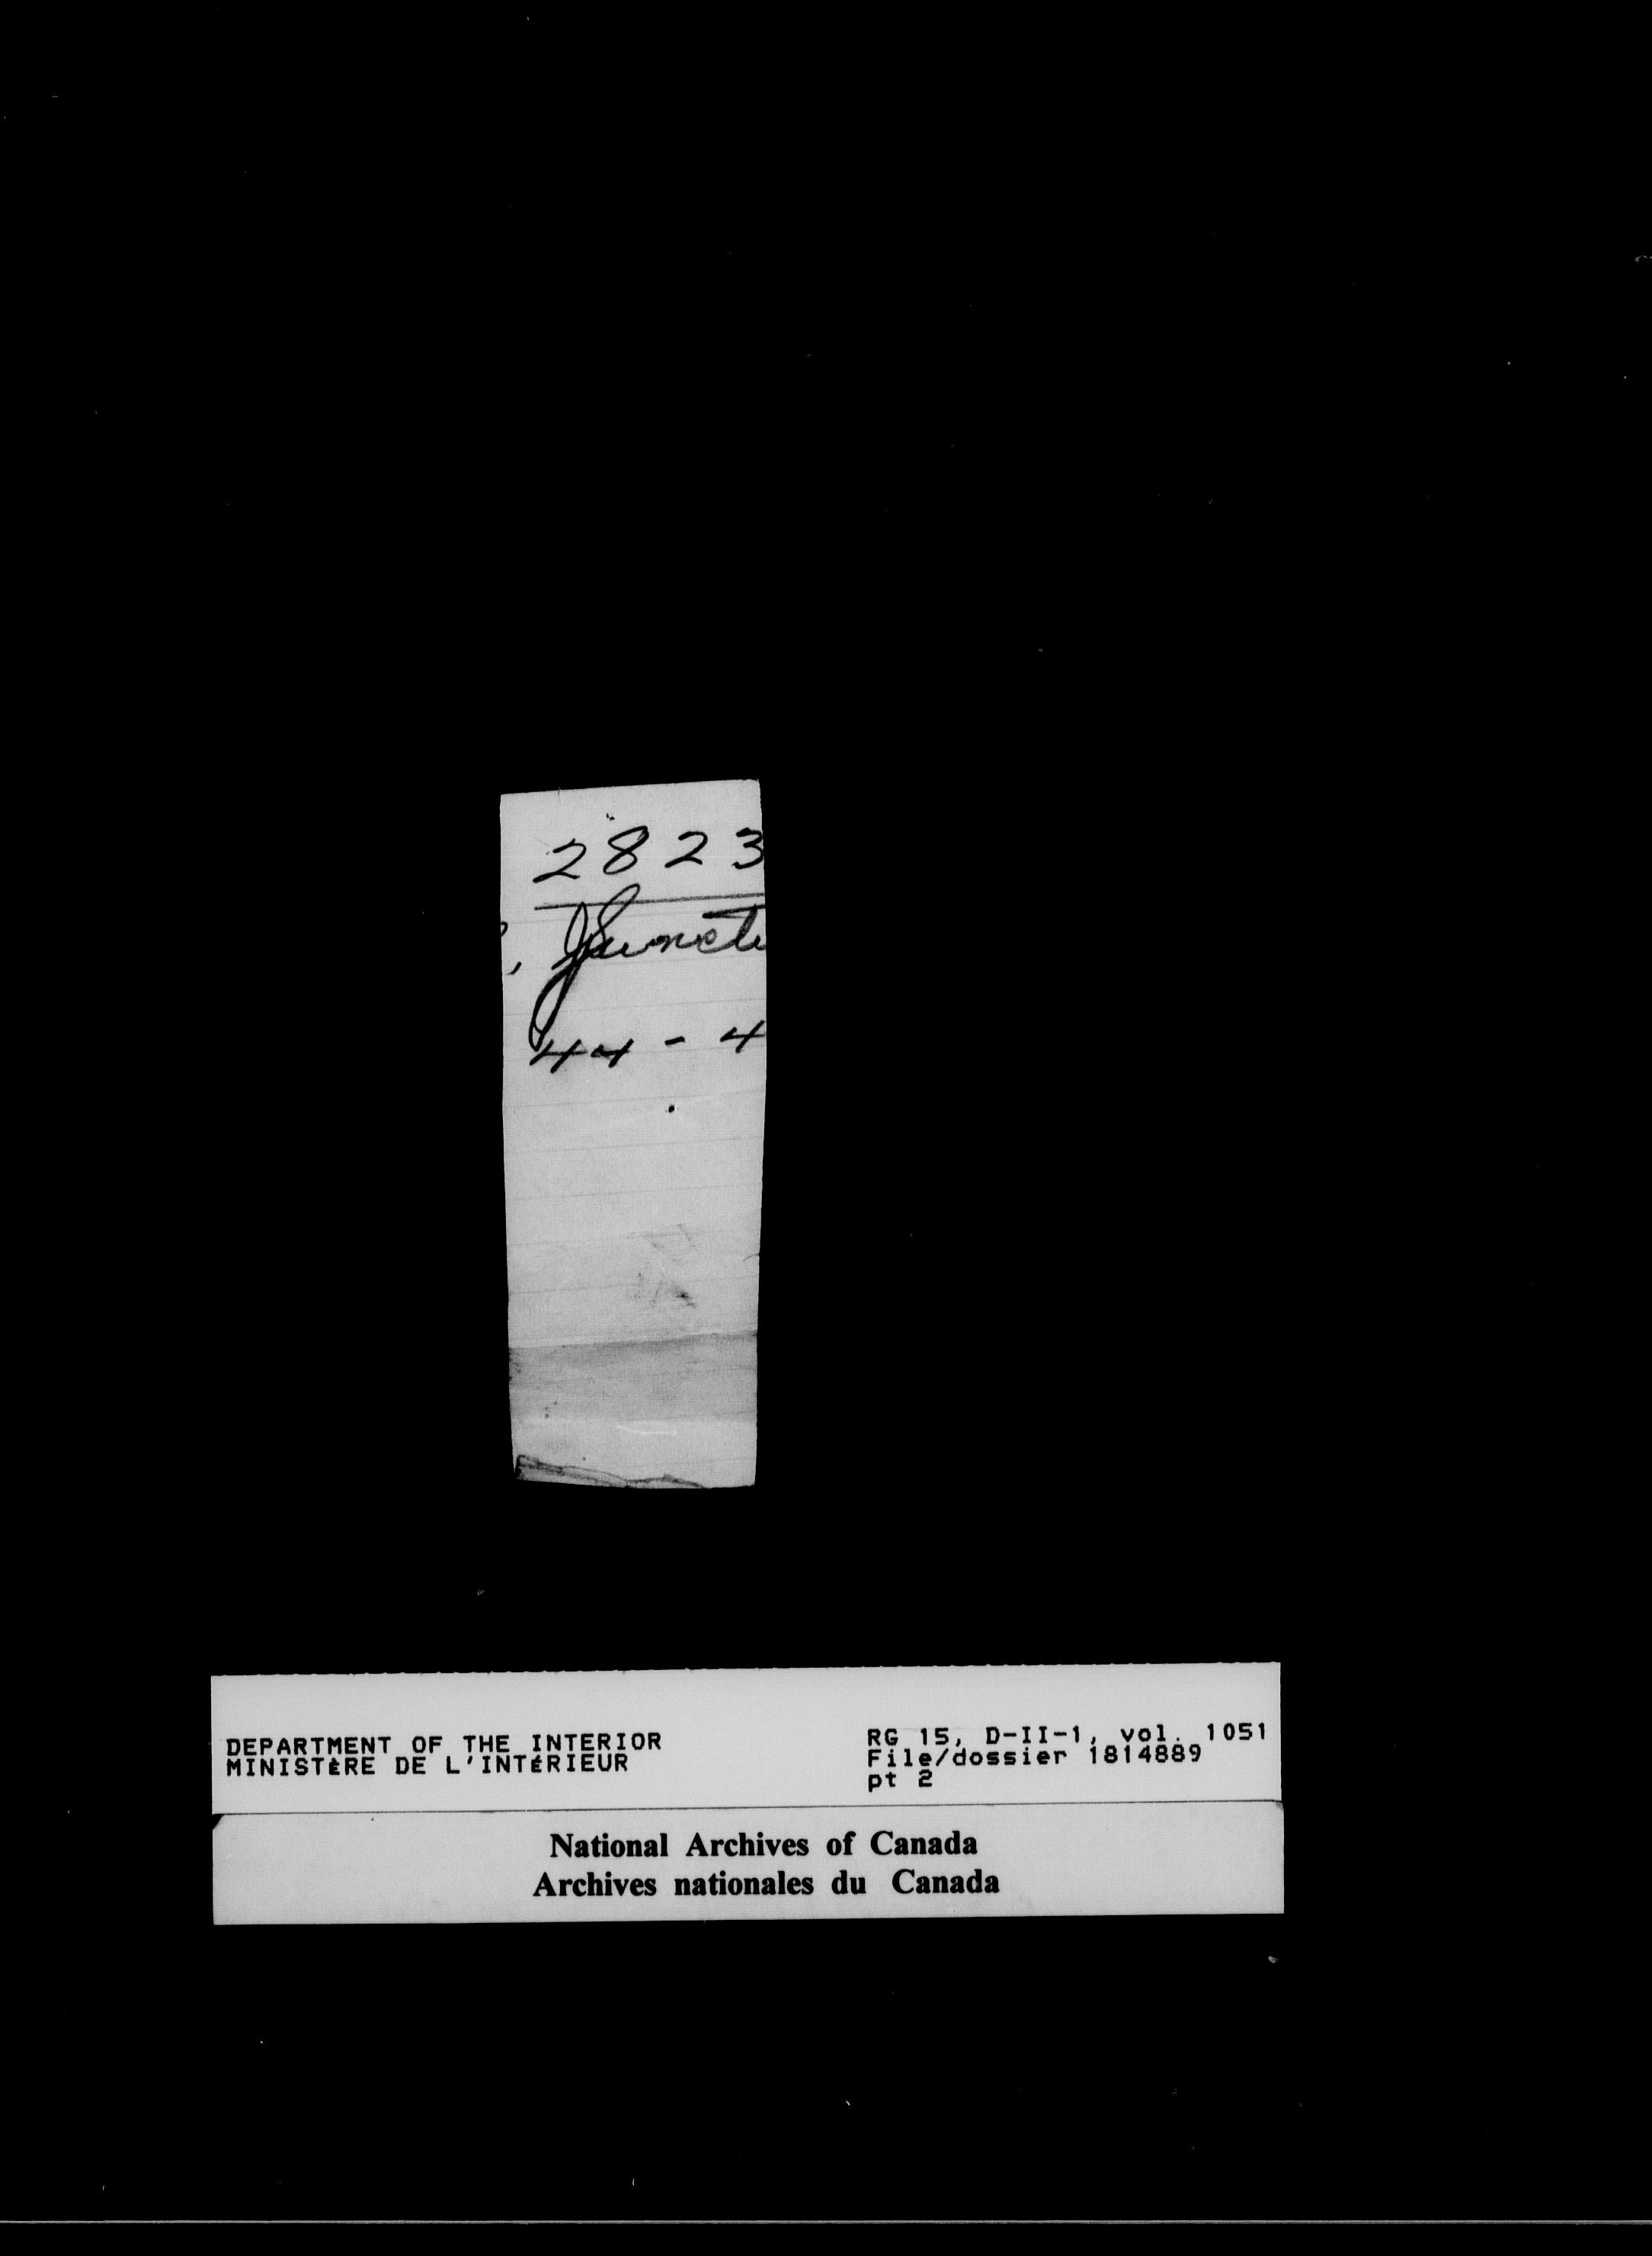 2823
, Juncti
44 - 4
DEPARTMENT OF THE INTERIOR
MINISTÈRE DE L'INTÉRIEUR
RG 15, D-II-1, vol. 1051
File/dossier 1814889
pt 2
National Archives of Canada
Archives nationales du Canada